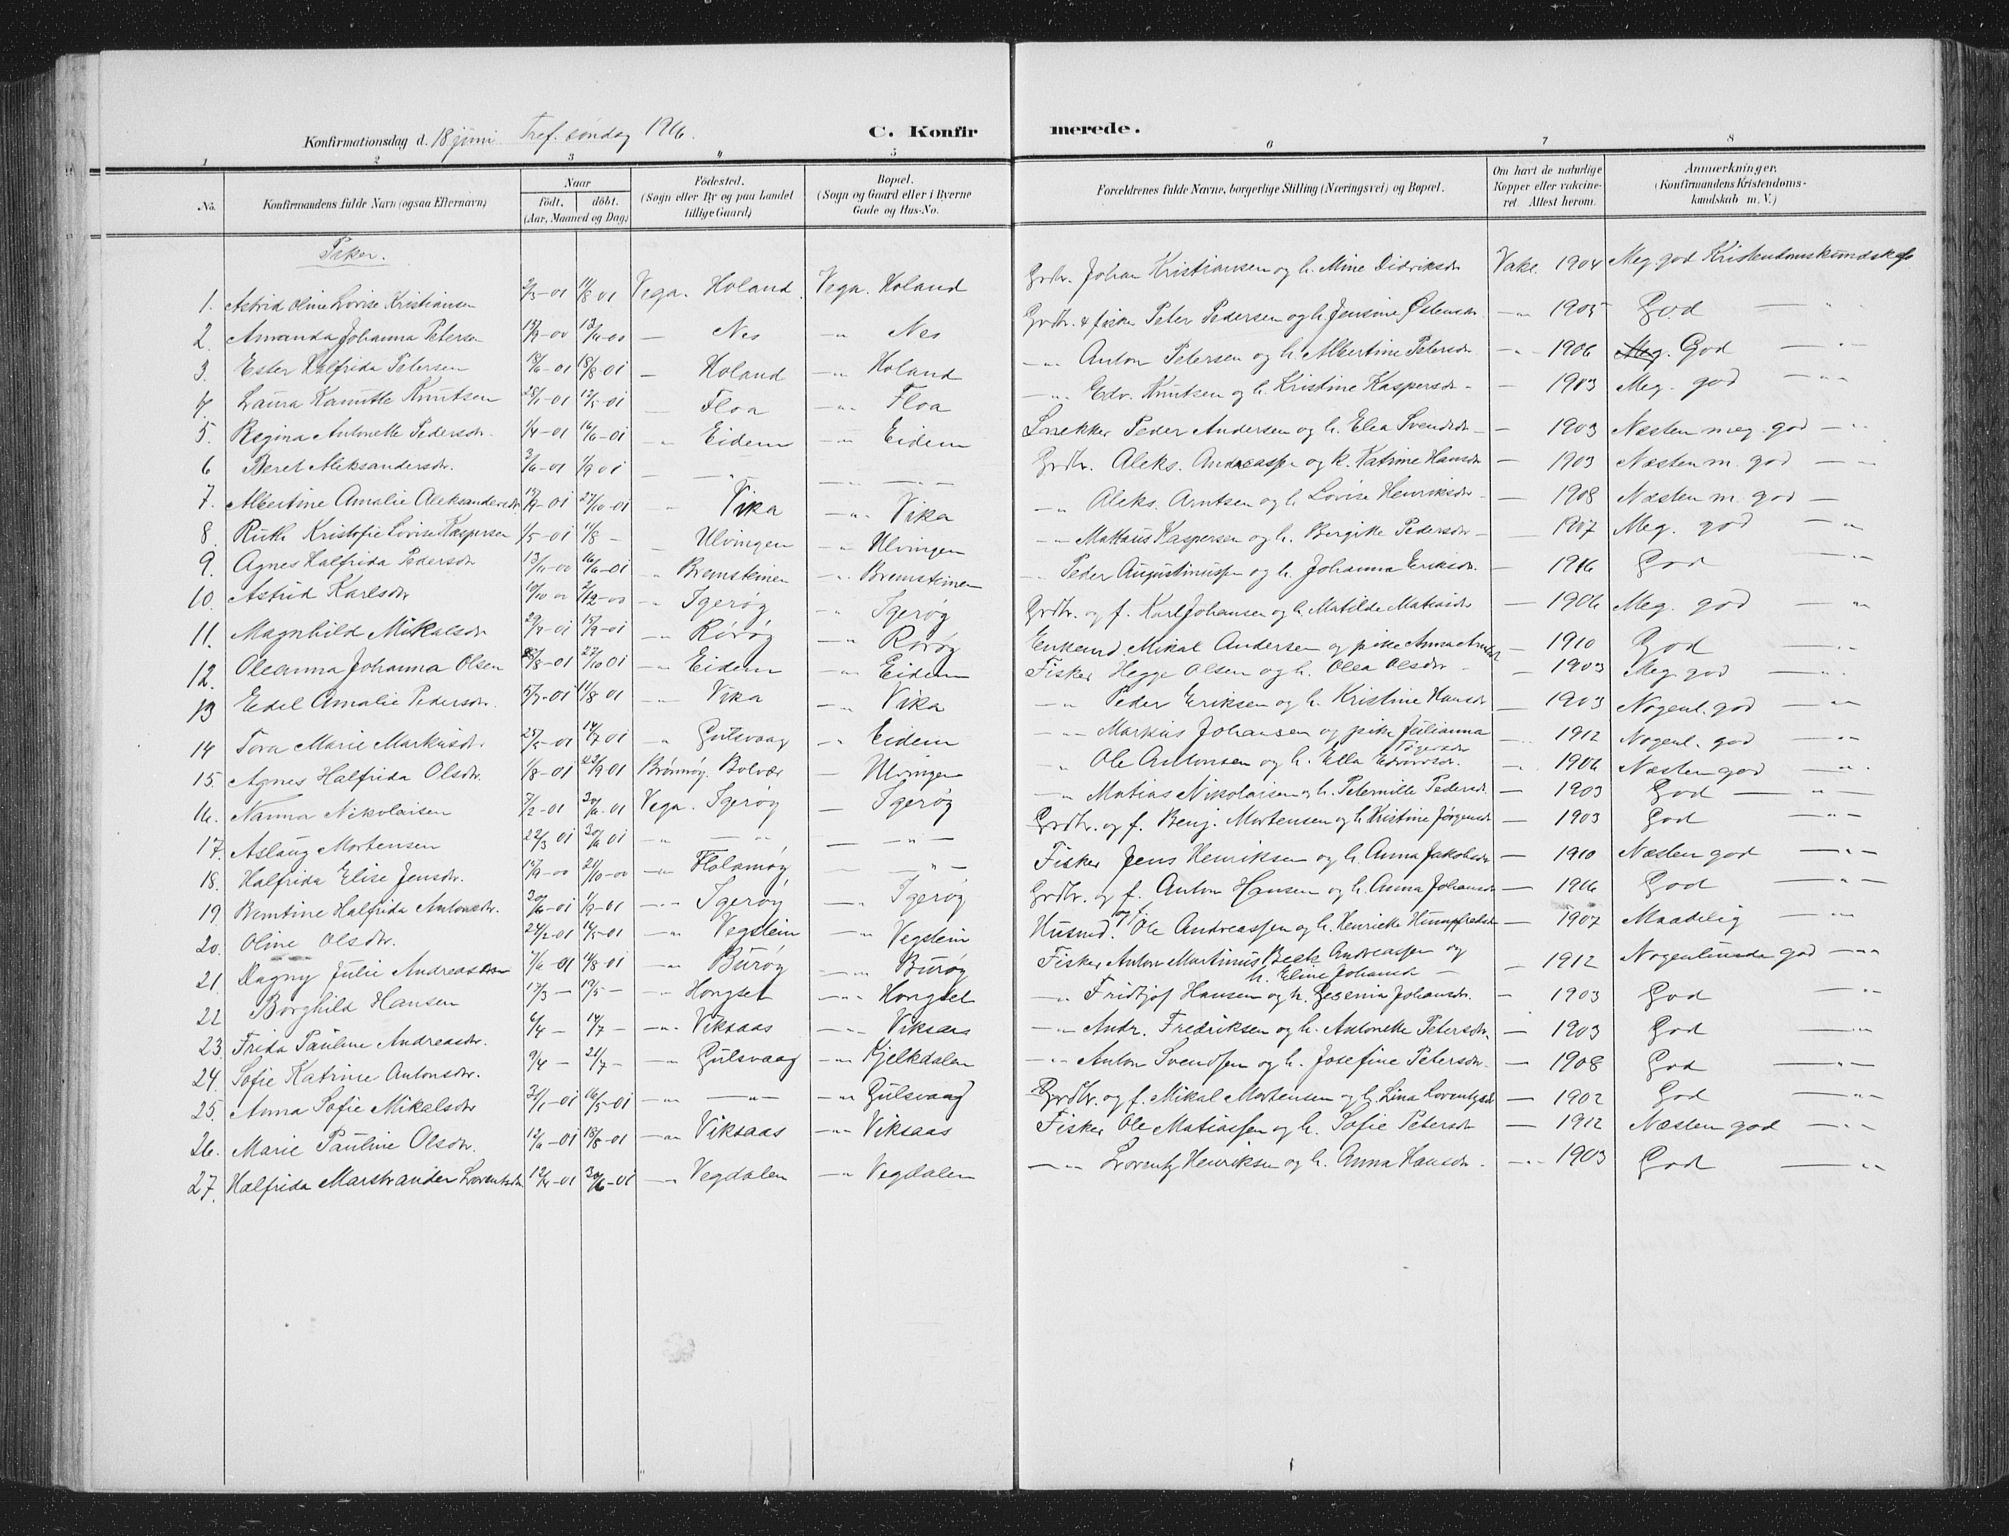 Konfirmationsdag d. 18 juni Tref. søndag 1916.
C. Konfirmerede.
1 2 3 4 5 6 7 8
No. | Konfirmandens fulde Navn (ogsaa Efternavn) | Naar født, døbt. (Aar, Maaned og Dag) | Fødested. (Sogn eller By og paa Landet tillige Gaard) | Bopæl. (Sogn og Gaard eller i Byerne Gade og Hus-No. | Forældrenes fulde Navne, borgerlige Stilling (Næringsvei) og Bopæl. | Om havt de naturlige Kopper eller vakcineret. Attest herom. | Anmærkninger. (Konfirmandens Kristendomskundskab m. V.)
Piker.
1. Astrid Oline Lovise Kristiansen 2/5-01 11/8 01 Vega. Holand. Vega. Holand Grdbr. Johan Kristiansen og h. Mine Didriksdr Vakc. 1904 Meg. god Kristendomskundskab
2. Amanda Johanna Petersen 19/9-00 13/10-00 — Nes " Nes Grdbr. & fisker Peter Pedersen og h. Jensine Østensdr - " 1905 God — "
3. Ester Halfrida Petersen 18/6-01 18/8 01 — Holand " Holand — " Anton Petersen og h. Albertine Petersdr - " 1906 Meg. God — "
4. Laura Kanutte Knutsen 25/1-01 12/5-01 — Floa " Floa — " Edv. Knutsen og h. Kristine Kaspersdr - 1903 Meg. god — "
5. Regina Antonette Pedersdr. 1/4-01 16/6-01 " Eidem " Eidem Snekker Peder Andersen og h. Elea Svendsdr - 1903 Næsten meg. god — "
6 Beret Aleksandersdr. 3/6-01 1/9 01 — " — — " — Grdbr. Aleks. Andreassen og h. Katrine Hansdr — 1903 Næsten m. god — "
7. Albertine Amalie Aleksandersdr 19/9-01 27/10-01 " Vika " Vika — " Aleks. Arntsen og h. Lovise Henriksdr — 1908 Næsten m. god —
8. Ruth Kristofie Lovise Kaspersen 1/5-01 11/8 - " Ulvingen " Ulvingen — " Mattæus Kaspersen og h. Bergitte Pedersdr — 1907 Meg. god — "
9. Agnes Halfrida Pedersdr 13/11-00 16/6-01 " Bremsteinen " Bremsteinen — " Peder Augustinussen og h. Johanna Eriksdr. — 1916 God — "
10. Astrid Karlsdr 10/10 00 2/12-00 " Igerøy " Igerøy Grdbr. og f. Karl Johansen og h. Matilde Matiasdr — 1906 Meg. god — "
11. Magnhild Mikalsdr 29/4-01 15/9-01 " Rørøy " Rørøy Enkemd Mikal Andersen og pike Anna — 1910 God — "
12. Oleanna Johanna Olsen 28/8-01 27/10 01 " Eidem " Eidem Fisker Hegge Olsen og h. Olea Olsdr — 1903 Meg. god — "
13 Edel Amalie Pedersdr. 5/7-01 11/8 01 " Vika " Vika — " Peder Eriksen og h. Kristine Hansdr — 1903 Nogenl. god — "
14 Tora Marie Markusdr. 25/5-01 14/7 01 " Gulsvaag " Eidem — " Markus Johansen og pike Julianna — 1912 Nogenl. god — "
15. Agnes Halfrida Olsdr. 1/8-01 22/9 01 Brønnøy. Bolvær — Ulvingen — " Ole Antonsen og h. Ella — " 1906 Næsten god — "
16. Nanna Nikolaisen 7/2-01 30/6-01 Vega. Igerøy — Igerøy — " Matias Nikolaisen og h. Peternille Pedersdr. — 1903 God — "
17. Aslaug Mortensen 22/3 01 30/6 01 " — " — " — Grdbr. og f. Benj. Mortensen og h. Kristine Jørgensdr — 1903 God — "
18. Halfrida Elise Jensdr. 15/9-00 21/10-00 — Flolamøy — " — Fisker Jens Henriksen og h. Anna Jakobsdr — 1910 Næsten god — "
19 Berntine Halfrida Antonsdr. 20/6-01 1/9-01 — " Igerøy — " Igerøy Grdbr. og f. Anton Hansen og h. Anna Johansdr — 1916 God — "
20. Oline Olsdr. 24/2-01 16/5-01 — " Vegstein — " Vegstein Husmd. og f. Ole Andreassen og h. Henrikke Humpfredsdr — 1907 Maadelig — "
21. Dagny Julie Andreassen 7/6 01 18/8-01 — " Burøy — " Burøy Fisker Anton Martinus Beck Andreassen og
h. Eline Johansdr — — 1912 Nogenlunde god — "
22 Borghild Hansen 17/3 — 19/5 — — " Hongset — " Hongset — " Fridtjof Hansen og h. Gesenia Johansdr. — 1903 God — "
23. Frida Pauline Andreasdr. 6/4 — 14/7 — — " Viksaas — " Viksaas — " Andr. Fredriksen og h. Antonette Petersdr. — 1903 God — "
24. Sofie Katrine Antonsdr. 9/4 — 21/7 — — " Gulsvaag — " Kjelkdalen — " Anton Svendsen og h. Josefine Petersdr. — 1908 God — "
25. Anna Sofie Mikalsdr 30/1-01 16/5-01 — " — " Gulsvaag Grdbr. og f. Mikal Mortensen og h. Lina Lorentzsdr — 1902 God — "
26. Marie Pauline Olsdr. 12/6-01 18/8-01 — " Viksaas — " Viksaas Fisker Ole Matiassen og h. Sofie Petersdr — 1912 Næsten god — "
27. Halfrida Marstrander Lorentsdr. 12/4-01 30/6-01 — " Vegdalen — " Vegdalen — " Lorentz Henriksen og h. Anna Hansdr. — " 1903 God — "